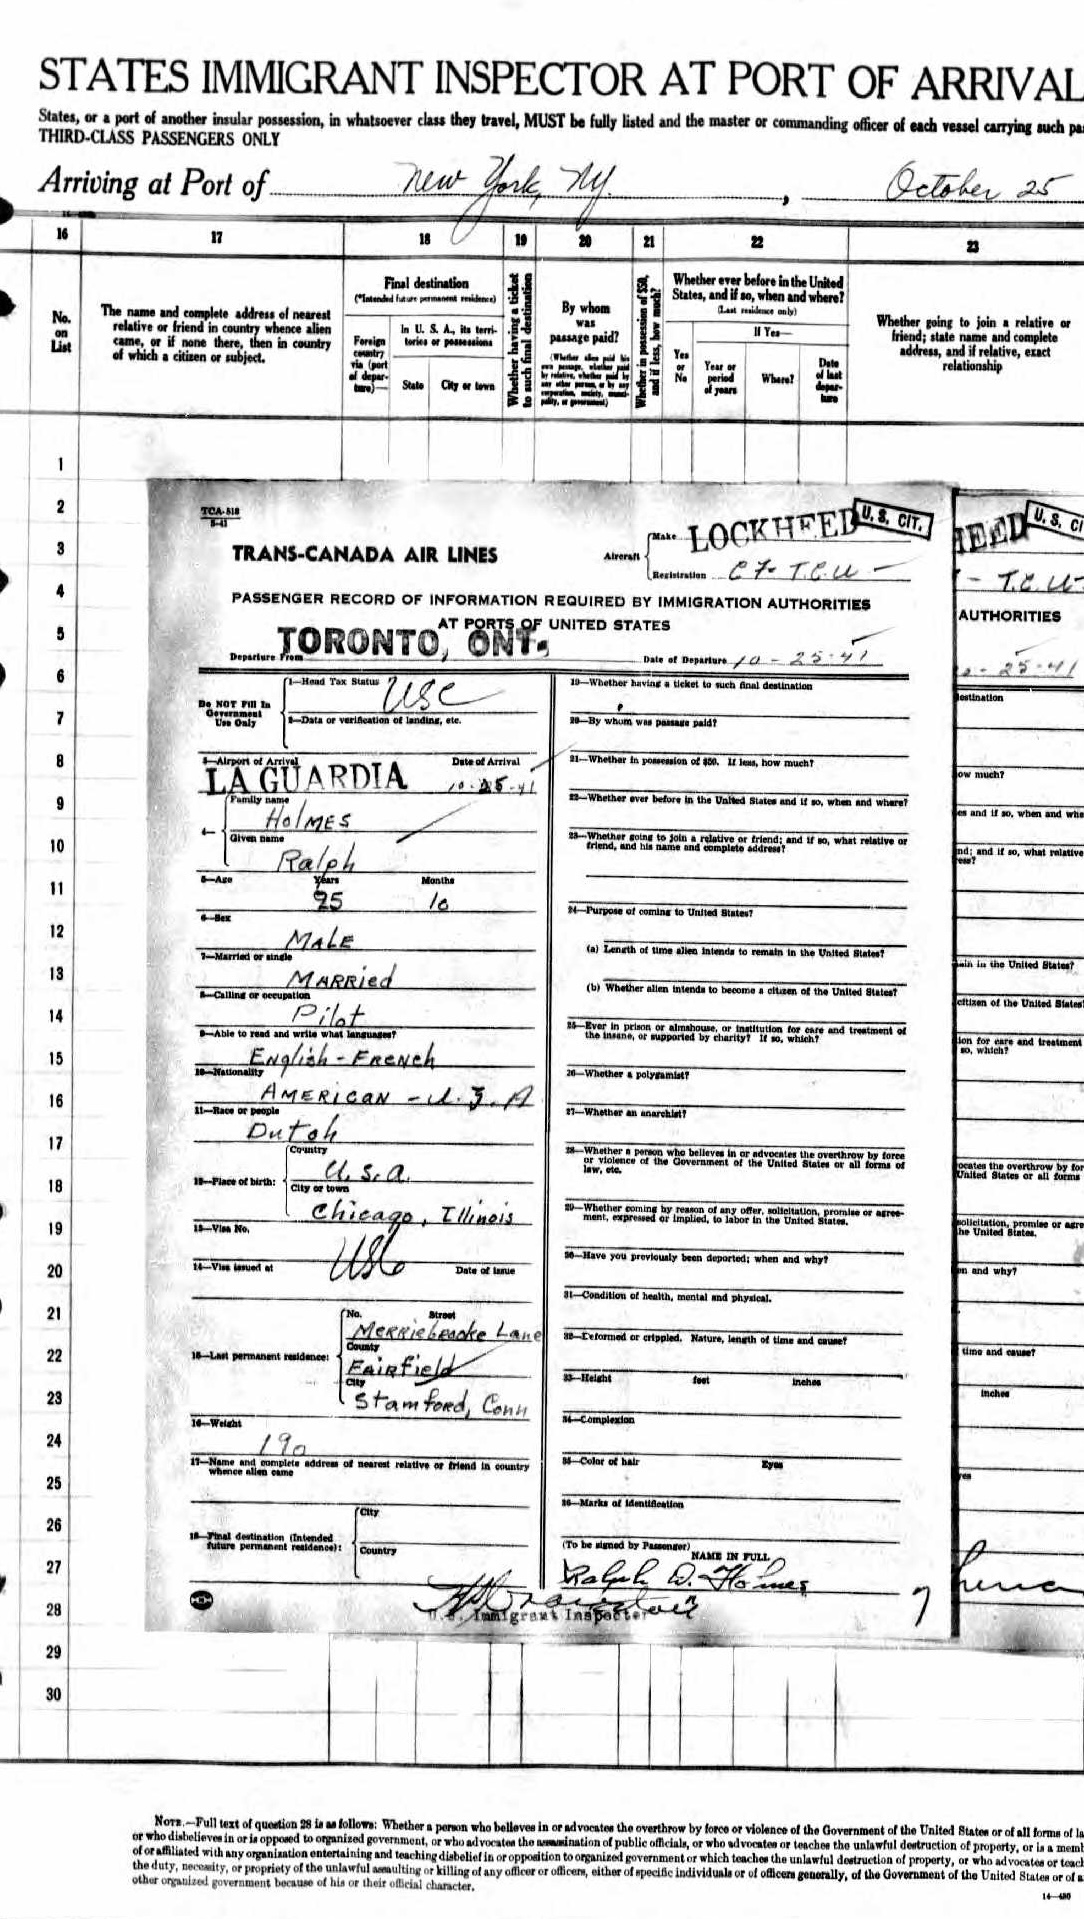 STATES IMMIGRANT INSPECTOR AT PORT OF ARRIVAL
States, or a port of another insular possession, in whatsoever class they travel, MUST be fully listed and the master or commanding officer of each vessel carrying such pa
THIRD-CLASS PASSENGERS ONLY
Arriving at Port of New York, NY. , October 25
16 17 18 19 20 21 22 23
No. on List
The name and complete address of nearest
relative or friend in country whence alien
came, or if none there, then in country
of which a citizen or subject.
Final destination
(*Intended future permanent residence)
Foreign country via (port of departure)—
In U. S. A., its territories or possessions
State
City or town
Whether having a ticket to such final destination
By whom was passage paid?
(Whether alien paid his own passage, whether paid by relative, whether paid by any other person, or by any corporation, society, municipality, or government)
Whether in possession of $50, and if less, how much?
Whether ever before in the United
States, and if so, when and where?
(Last residence only)
Yes or No
If Yes—
Year or period of years
Where?
Date of last departure
Whether going to join a relative or
friend; state name and complete
address, and if relative, exact
relationship
1
2
3
4
5
6
7
8
9
10
11
12
13
14
15
16
17
18
19
20
21
22
23
24
25
26
27
28
29
30
TCA-518
5-41
TRANS-CANADA AIR LINES
Aircraft
Make LOCKHEED
U. S. CIT.
Registration CF-T.C.U-
PASSENGER RECORD OF INFORMATION REQUIRED BY IMMIGRATION AUTHORITIES
AT PORTS OF UNITED STATES
Departure From TORONTO, ONT.
Date of Departure 10-25-41
Do NOT Fill In
Government
Use Only
1—Head Tax Status USC
2—Data or verification of landing, etc.
3—Airport of Arrival LA GUARDIA
Date of Arrival 10-25-41
4—
Family name
HOLMES
Given name
Ralph
5—Age
Years
Months
10
6—Sex
MALE
7—Married or single
MARRIED
8—Calling or occupation
Pilot
9—Able to read and write what languages?
English-French
10—Nationality
AMERICAN-U.S.A
11—Race or people
Dutch
12—Place of birth:
Country
U.S.A.
City or town
Chicago, Illinois
13—Visa No.
14—Visa issued at
USC
Date of issue
15—Last permanent residence:
No. Street
Merriebrooke Lane
County
FAIRField
City
Stamford, Conn
16—Weight
190
17—Name and complete address of nearest relative or friend in country
whence alien came
18—Final destination (Intended
future permanent residence):
City
Country
19—Whether having a ticket to such final destination
20—By whom was passage paid?
21—Whether in possession of $50. If less, how much?
22—Whether ever before in the United States and if so, when and where?
23—Whether going to join a relative or friend; and if so, what relative or
friend, and his name and complete address?
24—Purpose of coming to United States?
(a) Length of time alien intends to remain in the United States?
(b) Whether alien intends to become a citizen of the United States?
25—Ever in prison or almshouse, or institution for care and treatment of
the insane, or supported by charity? If so, which?
26—Whether a polygamist?
27—Whether an anarchist?
28—Whether a person who believes in or advocates the overthrow by force
or violence of the Government of the United States or all forms of
law, etc.
29—Whether coming by reason of any offer, solicitation, promise or agree-
ment, expressed or implied, to labor in the United States.
30—Have you previously been deported; when and why?
31—Condition of health, mental and physical.
32—Deformed or crippled. Nature, length of time and cause?
33—Height feet inches
34—Complexion
35—Color of hair Eyes
36—Marks of identification
(To be signed by Passenger)
NAME IN FULL
Ralph D. Holmes
U.S. Immigrant Inspector
HEED
U. S. CI
- T.C.U-
AUTHORITIES
10-25-41
destination
ow much?
es and if so, when and whe
nd; and if so, what relative
ress?
ain in the United States?
citizen of the United States
ion for care and treatment
so, which?
ocates the overthrow by for
United States or all forms
solicitation, promise or agre
he United States.
en and why?
time and cause?
inches
yes
NOTE.—Full text of question 28 is as follows: Whether a person who believes in or advocates the overthrow by force or violence of the Government of the United States or of all forms of la
or who disbelieves in or is opposed to organized government, or who advocates the assassination of public officials, or who advocates or teaches the unlawful destruction of property, or is a memb
of or affiliated with any organization entertaining and teaching disbelief in or opposition to organized government or which teaches the unlawful destruction of property, or who advocates or teach
the duty, necessity, or propriety of the unlawful assaulting or killing of any officer or officers, either of specific individuals or of officers generally, of the Government of the United States or of a
other organized government because of his or their official character.
14—480